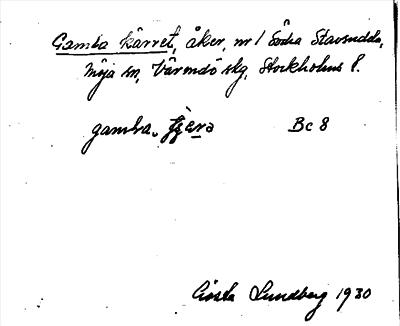 Gamla kärret, åker, nr 1 Södra Stavsudda,
Möja sn, Värmdö skg, Stockholms l.
gamla Bc 8
Gösta Lundberg 1930